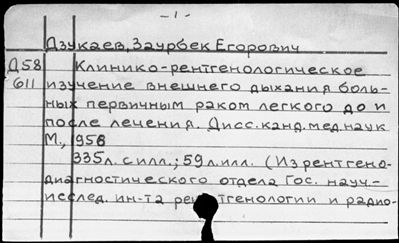 - 1 -
Дзукаев, Заурбек Егорович
Д58 Клинико-рентгенологическое
611 изучение внешнего дыхания боль-
ных первичным раком легкого до и
после лечения. Дисс. канд. мед. наук
М., 1958
335л. с илл.; 59л. илл. (Из рентгено-
диагностического отдела Гос. науч.-
исслед. ин-та рентгенологии и радио-